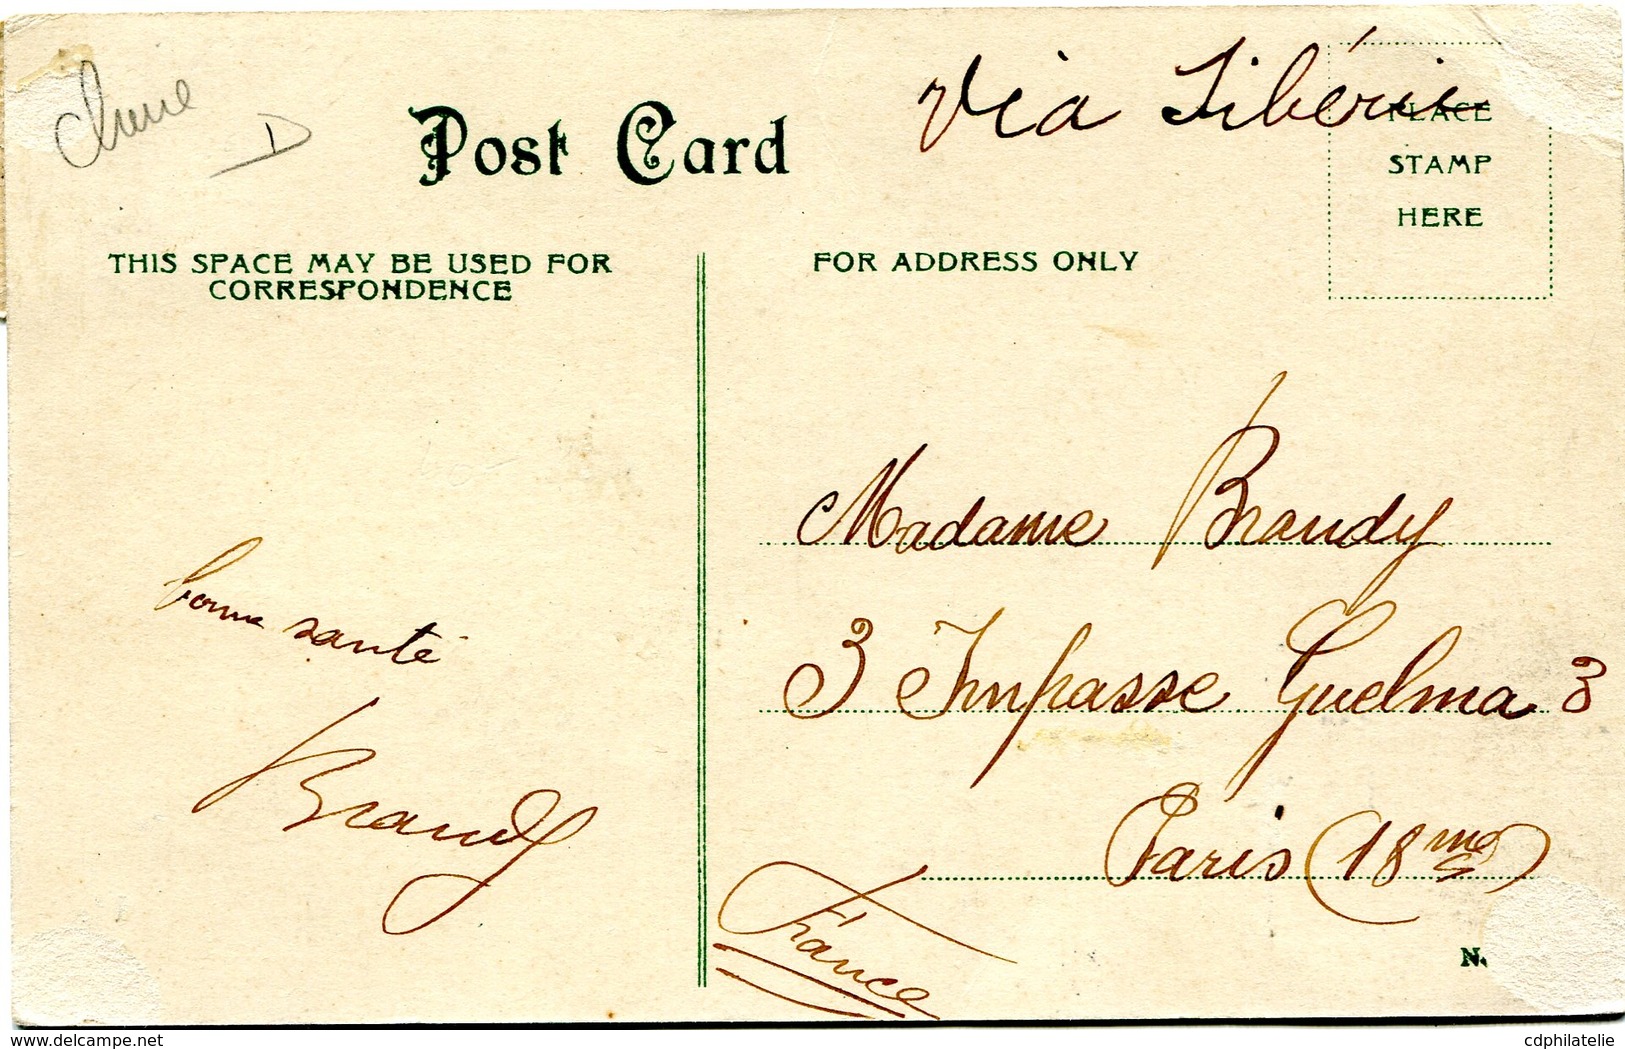 Chine
D
Via Sibérie
Post Card
PLACE
STAMP
HERE
THIS SPACE MAY BE USED FOR
CORRESPONDENCE
FOR ADDRESS ONLY
bonne santé
Brandy
Madame Brandy
3 Impasse Guelma 3
Paris (18me)
France
N.
delcampe.net
cdphilatelie